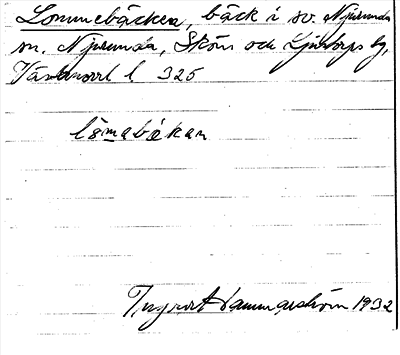 Lommebäcken, bäck i sv. Njurunda
sn. Njurunda, Sköns och Ljustorps tg,
Västnorrl l 325
lòmabäkan
Ingvart Hammarström 1932